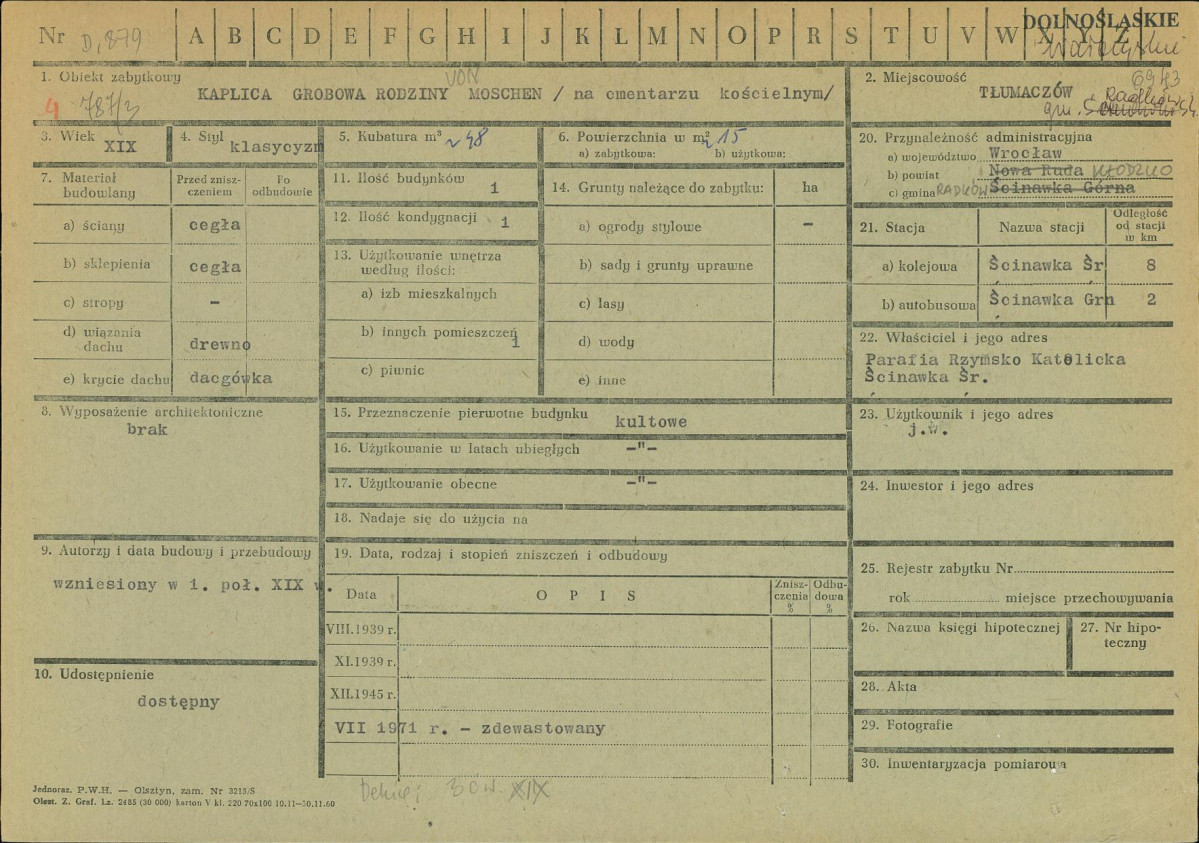 Nr D,879 A B C D E F G H I J K L M N O P R S T U V W X Y Z DOLNOŚLĄSKIE
1. Obiekt zabytkowy
4 787/3
VON
KAPLICA GROBOWA RODZINY MOSCHEN / na cmentarzu kościelnym/
2. Miejscowość
TŁUMACZÓW
gm. Radków
3. Wiek
XIX
4. Styl
klasycyzm
5. Kubatura m³
~ 48
6. Powierzchnia w m² 15
a) zabytkowa: b) użytkowa:
7. Materiał budowlany
Przed zniszczeniem
Po odbudowie
a) ściany cegła
b) sklepienia cegła
c) stropy –
d) wiązania dachu drewno
e) krycie dachu dacgówka
8. Wyposażenie architektoniczne
brak
9. Autorzy i data budowy i przebudowy
wzniesiony w 1. poł. XIX w.
10. Udostępnienie
dostępny
11. Ilość budynków 1
12. Ilość kondygnacji 1
13. Użytkowanie wnętrza
według ilości:
a) izb mieszkalnych
b) innych pomieszczeń 1
c) piwnic
14. Grunty należące do zabytku: ha
a) ogrody stylowe –
b) sady i grunty uprawne
c) lasy
d) wody
e) inne
15. Przeznaczenie pierwotne budynku kultowe
16. Użytkowanie w latach ubiegłych –"–
17. Użytkowanie obecne –"–
18. Nadaje się do użycia na
19. Data, rodzaj i stopień zniszczeń i odbudowy
Data O P I S Zniszczenia % Odbudowa %
VIII.1939 r.
XI.1939 r.
XII.1945 r.
VII 1971 r. – zdewastowany
20. Przynależność administracyjna
a) województwo Wrocław
b) powiat Nowa Ruda KŁODZKO
c) gmina RADKÓW Ścinawka Górna
21. Stacja Nazwa stacji Odległość od stacji w km
a) kolejowa Ścinawka Śr 8
b) autobusowa Ścinawka Grn 2
22. Właściciel i jego adres
Parafia Rzymsko Katolicka
Ścinawka Śr.
23. Użytkownik i jego adres
j.w.
24. Inwestor i jego adres
25. Rejestr zabytku Nr
rok miejsce przechowywania
26. Nazwa księgi hipotecznej
27. Nr hipoteczny
28. Akta
29. Fotografie
30. Inwentaryzacja pomiarowa
Jednoraz. P.W.H. — Olsztyn, zam. Nr 3213/S
Olszt. Z. Graf. Lz. 2485 (30 000) karton V kl. 220 70x100 10.11—30.11.60
XIX